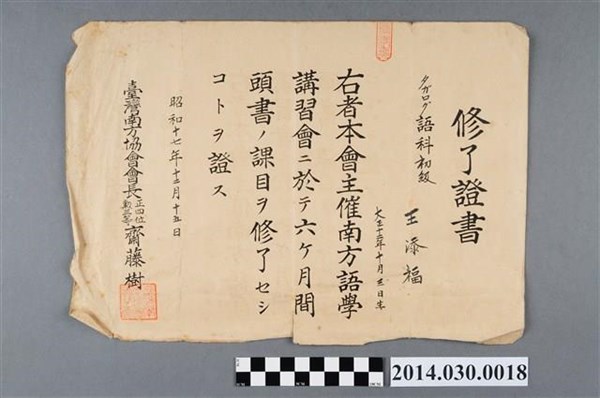 修了證書
タガログ語科初級
王添福
大正十三年十月三日生
右者本會主催南方語學
講習會ニ於テ六ケ月間
頭書ノ課目ヲ修了セシ
コトヲ證ス
昭和十七年十二月十五日
臺灣南方協會會長正四位勲三等齋藤樹
2014.030.0018